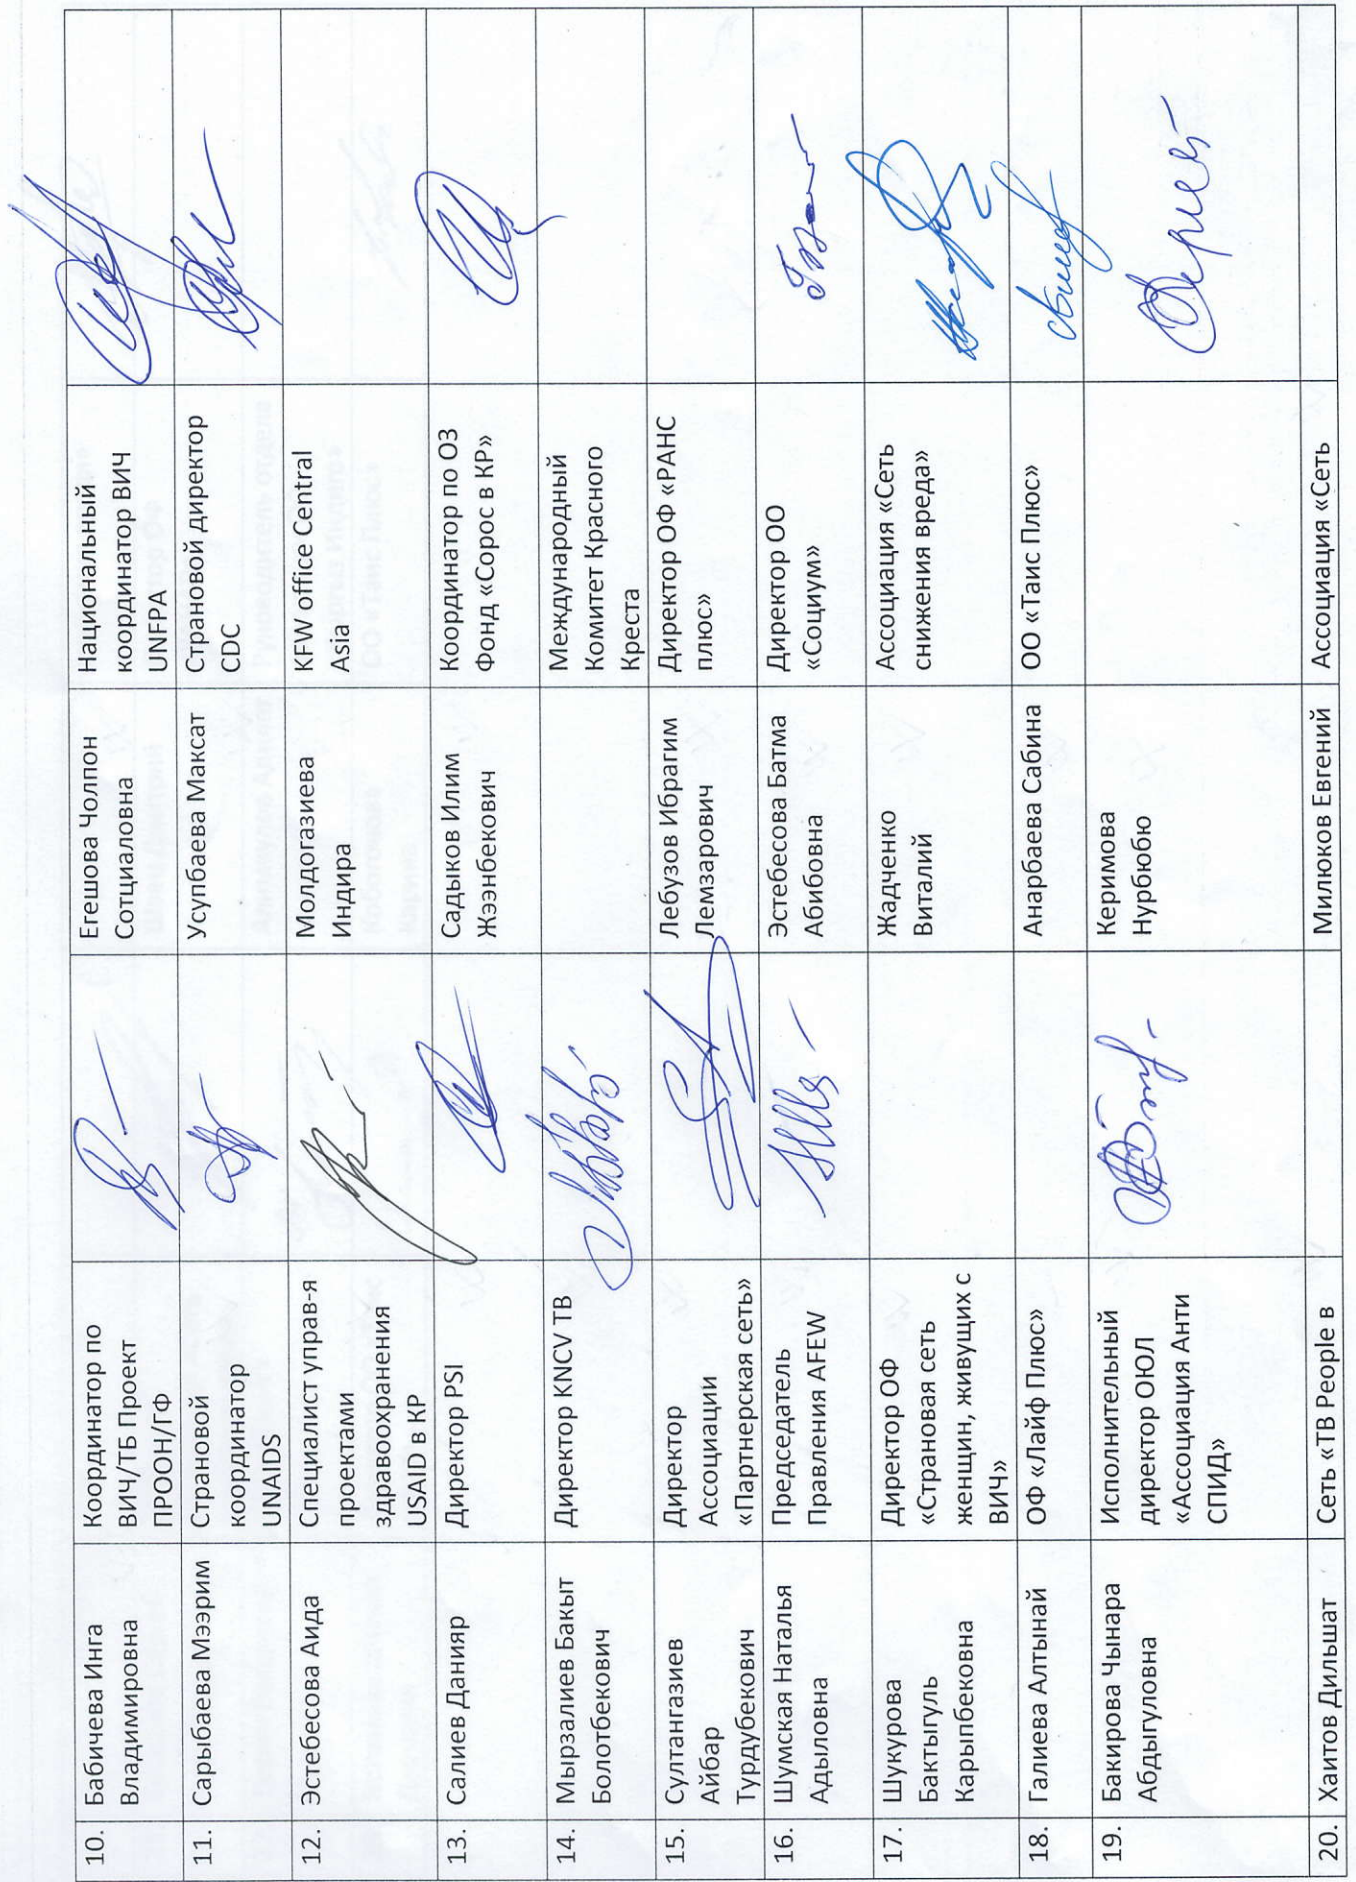 10.
Бабичева Инга
Владимировна
Координатор по
ВИЧ/ТБ Проект
ПРООН/ГФ
Егешова Чолпон
Сотциаловна
Национальный
координатор ВИЧ
UNFPA
11.
Сарыбаева Мээрим
Страновой
координатор
UNAIDS
Усупбаева Максат
Страновой директор
CDC
12.
Эстебесова Аида
Специалист управ-я
проектами
здравоохранения
USAID в КР
Молдогазиева
Индира
KFW office Central
Asia
13.
Салиев Данияр
Директор PSI
Садыков Илим
Жээнбекович
Координатор по ОЗ
Фонд «Сорос в КР»
14.
Мырзалиев Бакыт
Болотбекович
Директор KNCV ТВ
Международный
Комитет Красного
Креста
15.
Султангазиев
Айбар
Турдубекович
Директор
Ассоциации
«Партнерская сеть»
Лебузов Ибрагим
Лемзарович
Директор ОФ «РАНС
плюс»
16.
Шумская Наталья
Адыловна
Председатель
Правления AFEW
Эстебесова Батма
Абибовна
Директор ОО
«Социум»
17.
Шукурова
Бактыгуль
Карыпбековна
Директор ОФ
«Страновая сеть
женщин, живущих с
ВИЧ»
Жадченко
Виталий
Ассоциация «Сеть
снижения вреда»
18.
Галиева Алтынай
ОФ «Лайф Плюс»
Анарбаева Сабина
ОО «Таис Плюс»
19.
Бакирова Чынара
Абдыгуловна
Исполнительный
директор ОЮЛ
«Ассоциация Анти
СПИД»
Керимова
Нурбюбю
20.
Хаитов Дильшат
Сеть «ТВ People в
Милюков Евгений
Ассоциация «Сеть